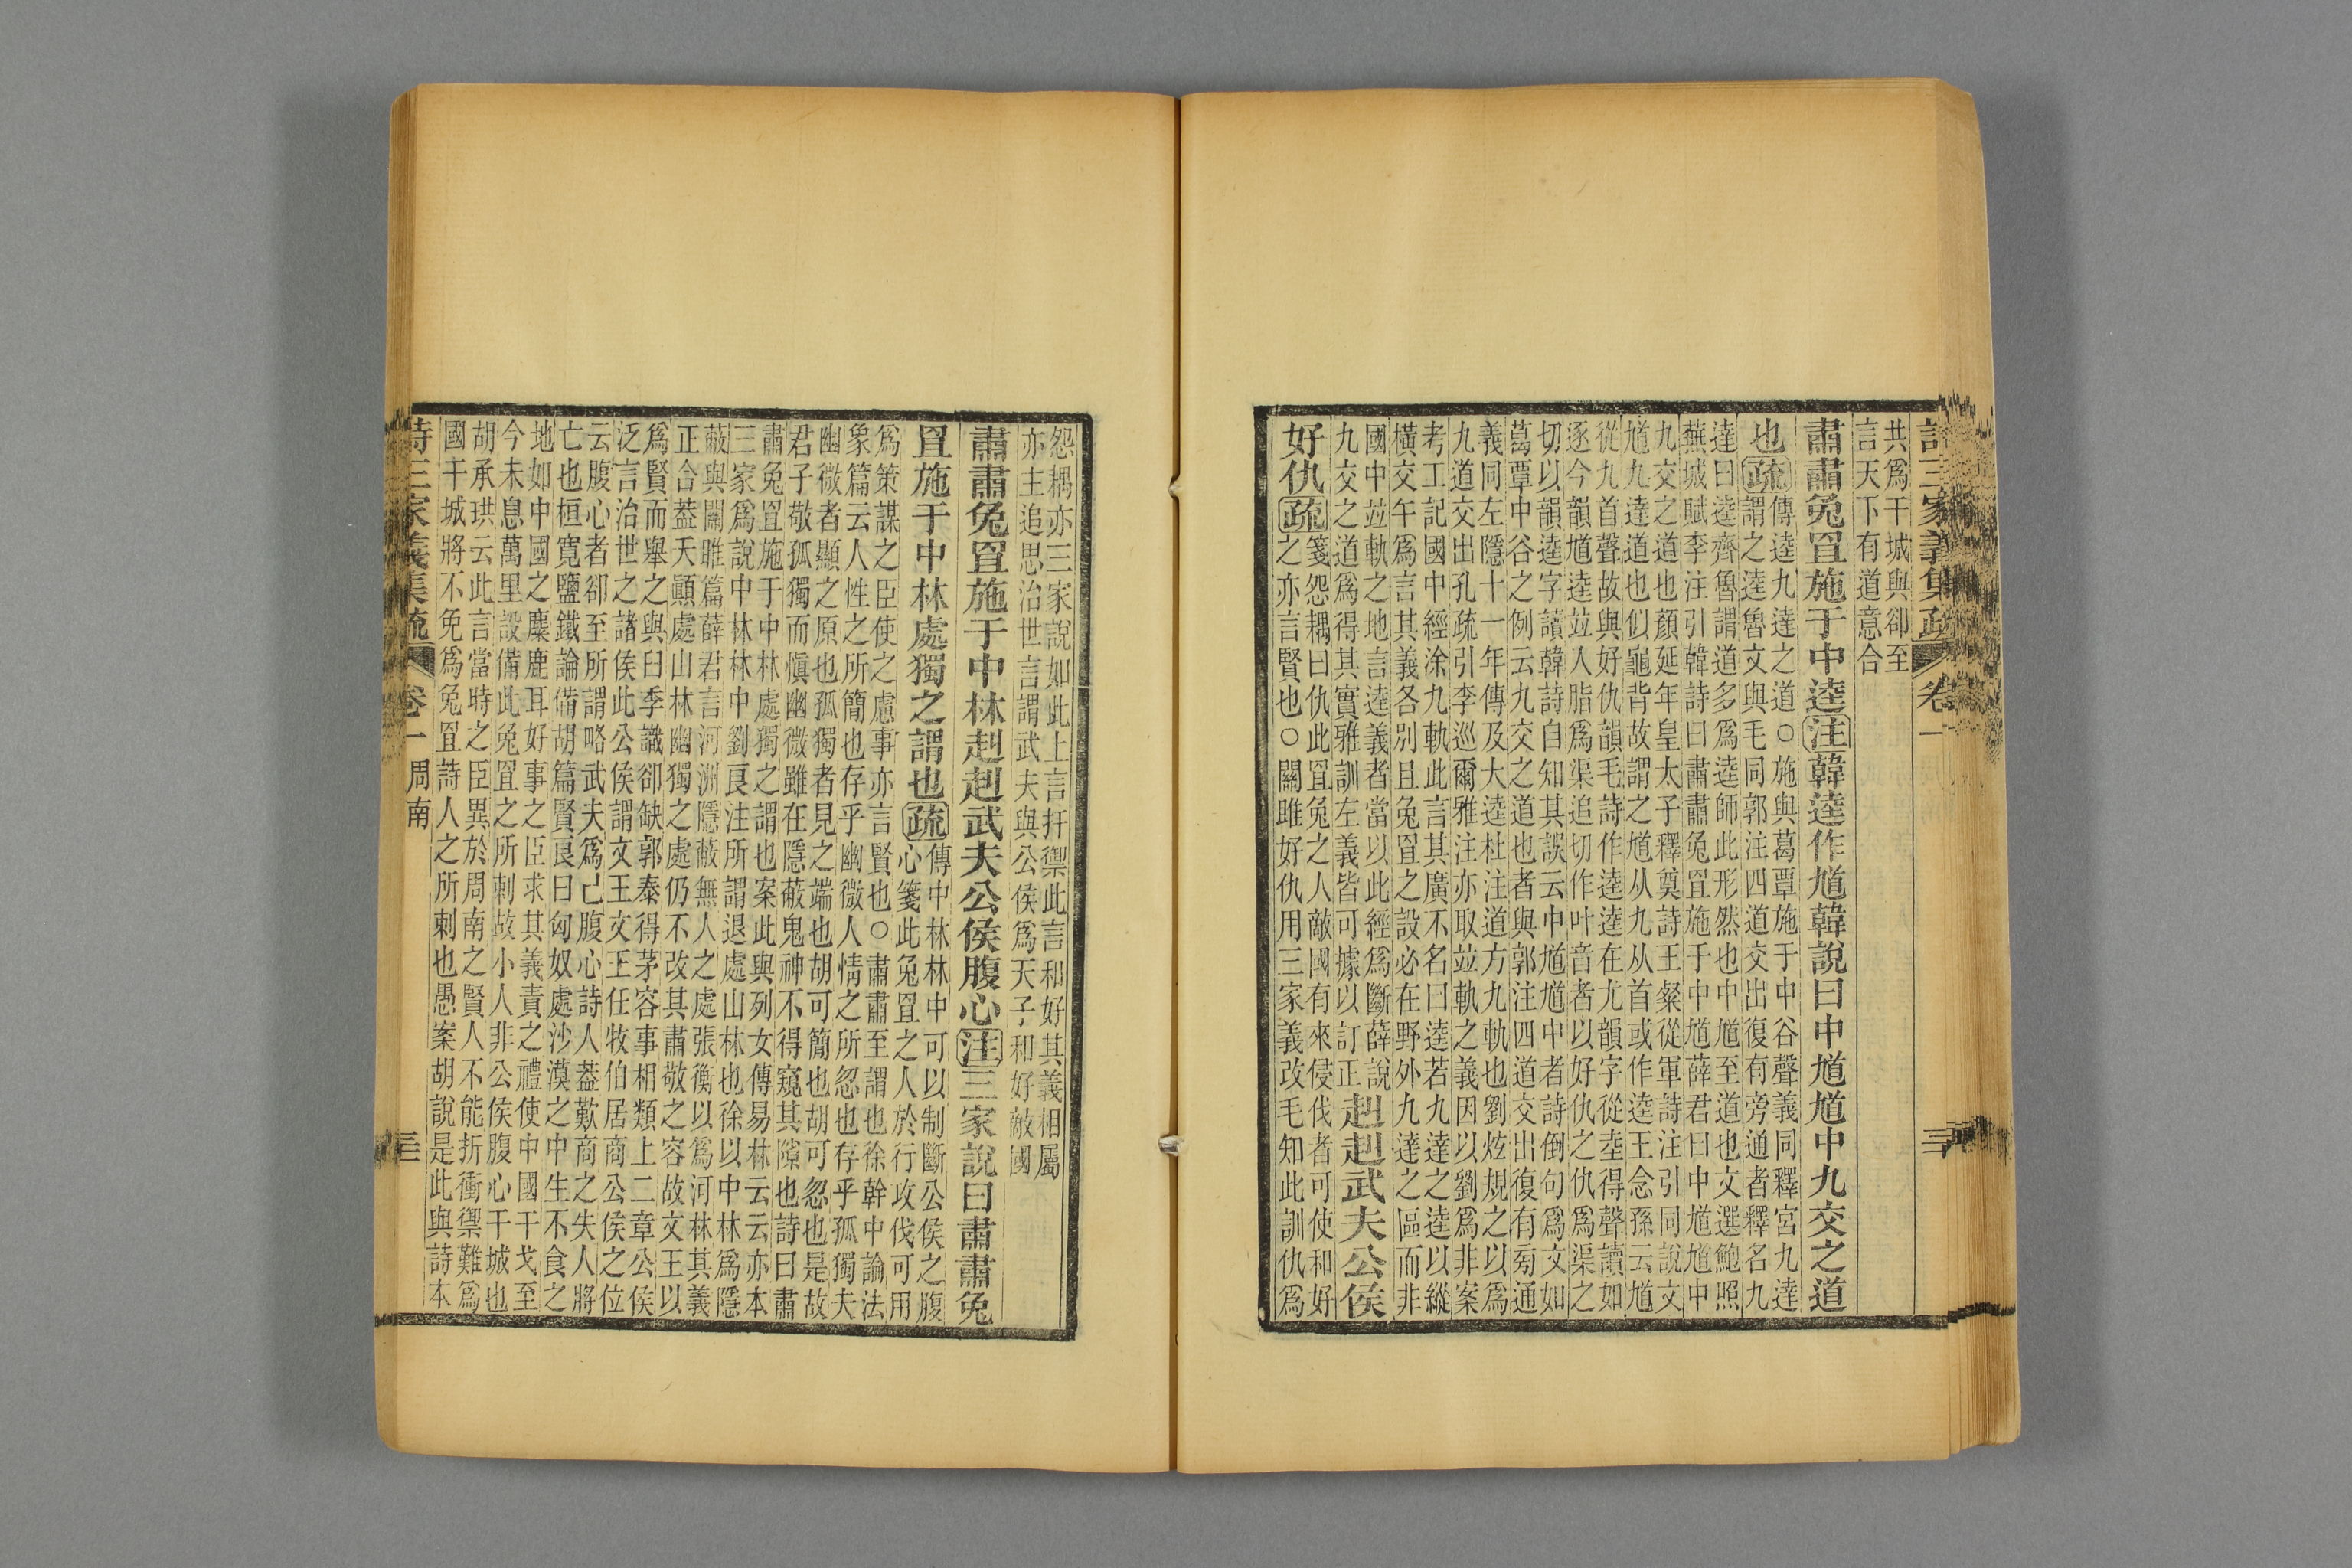 詩三家義集疏 卷一
共爲干城與卻至
言天下有道意合
肅肅兔罝施于中逵注韓逵作馗韓說曰中馗馗中九交之道
也疏傳逵九達之道○施與葛覃施于中谷聲義同釋宮九達
謂之逵魯文與毛同郭注四道交出復有旁通者釋名九
逵曰逵齊魯謂道多爲逵師此形然也中馗至道也文選鮑照
蕪城賦李注引韓詩曰肅肅兔罝施于中馗薛君曰中馗馗中
九交之道也顏延年皇太子釋奠詩王粲從軍詩注引同說文
馗九達道也似龜背故謂之馗从九从首或作逵王念孫云馗
從九首聲故與好仇韻毛詩作逵逵在尤韻字從坴得聲讀如
逐今韻馗逵竝人脂爲渠追切作叶音者以好仇之仇爲渠之
切以韻逵字讀韓詩自知其誤云中馗馗中者詩倒句爲文如
葛覃中谷之例云九交之道也者與郭注四道交出復有旁通
義同左隱十一年傳及大逵杜注道方九軌也劉炫規之以爲
九道交出孔疏引李巡爾雅注亦取竝軌之義因以劉爲非案
考工記國中經涂九軌此言其廣不名曰逵若九達之逵以縱
橫交午爲言其義各別且兔罝之設必在野外九達之區而非
國中竝軌之地言逵義者當以此經爲斷薛說
九交之道爲得其實雅訓左義皆可據以訂正赳赳武夫公侯
好仇疏箋怨耦曰仇此罝兔之人敵國有來侵伐者可使和好
之亦言賢也○關雎好仇用三家義改毛知此訓仇爲
怨耦亦三家說如此上言扞禦此言和好其義相屬
亦主追思治世言謂武夫與公侯爲天子和好敵國
肅肅兔罝施于中林赳赳武夫公侯腹心注三家說曰肅肅兔
罝施于中林處獨之謂也疏傳中林林中可以制斷公侯之腹
心箋此兔罝之人於行攻伐可用
爲策謀之臣使之慮事亦言賢也○肅肅至謂也徐幹中論法
象篇云人性之所簡也存乎幽微人情之所忽也存乎孤獨夫
幽微者顯之原也孤獨者見之端也胡可簡也胡可忽也是故
君子敬孤獨而愼幽微雖在隱蔽鬼神不得窺其隙也詩曰肅
肅兔罝施于中林處獨之謂也案此與列女傳易林云云亦本
三家爲說中林林中劉良注所謂退處山林也徐以中林爲隱
蔽與關雎篇薛君言河洲隱蔽無人之處張衡以爲河林其義
正合葢天顚處山林幽獨之處仍不改其肅敬之容故文王以
爲賢而舉之與臼季識卻缺郭泰得茅容事相類上二章公侯
泛言治世之諸侯此公侯謂文王文王任牧伯居商公侯之位
云腹心者卻至所謂略武夫爲己腹心詩人葢歎商之失人將
亡也桓寬鹽鐵論備胡篇賢良曰匈奴處沙漠之中生不食之
地如中國之麋鹿耳好事之臣求其義責之禮使中國干戈至
今未息萬里設備此兔罝之所刺故小人非公侯腹心干城也
胡承珙云此言當時之臣異於周南之賢人不能折衝禦難爲
國干城將不免爲兔罝詩人之所刺也愚案胡說是此與詩本
詩三家義集疏 卷一 周南